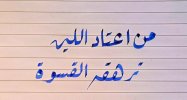 من اعتاد اللين
ترهقه القسوة